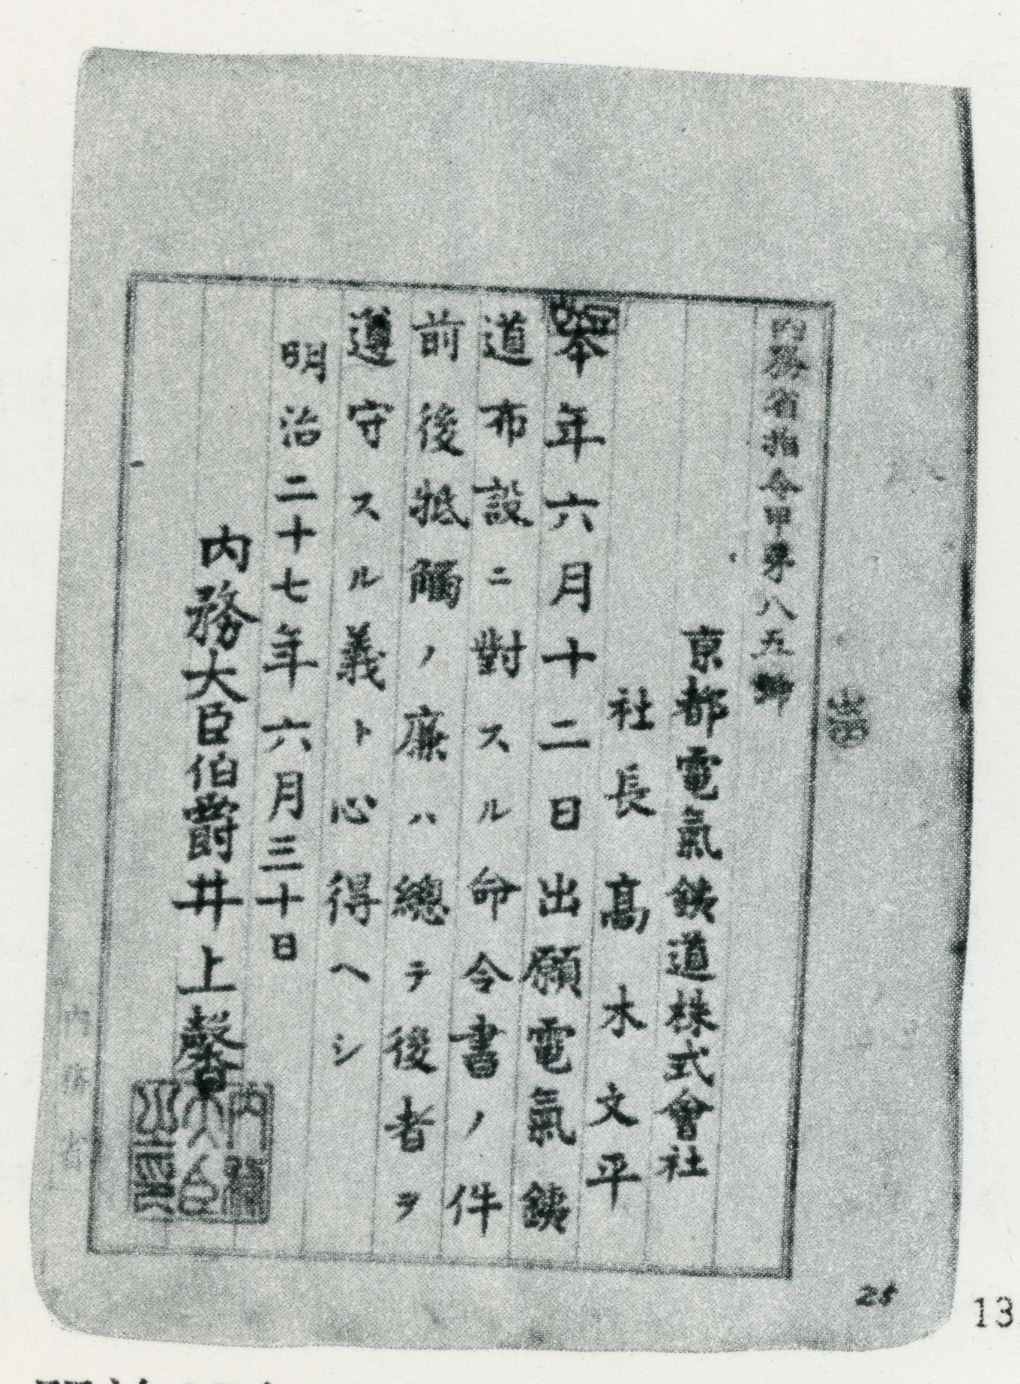 内務省指令甲第八五號
京都電氣鉄道株式會社
社長 髙木文平
本年六月十二日出願電氣鉄
道布設ニ對スル命令書ノ件
前後抵觸ノ廉ハ總テ後者ヲ
遵守スル義ト心得ヘシ
明治二十七年六月三十日
内務大臣伯爵井上馨
内務
大臣
之印
内務省
25
13